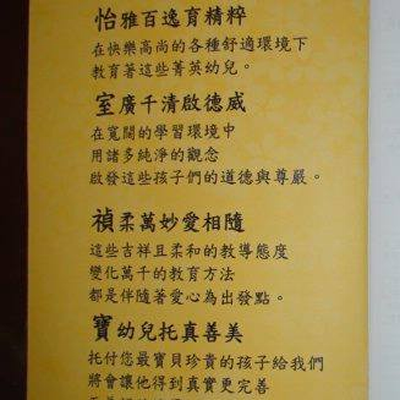 怡雅百逸育精粹
在快樂高尚的各種舒適環境下
教育著這些菁英幼兒。
室廣千清啟德威
在寬闊的學習環境中
用諸多純淨的觀念
啟發這些孩子們的道德與尊嚴。
禎柔萬妙愛相隨
這些吉祥且柔和的教導態度
變化萬千的教育方法
都是伴隨著愛心為出發點。
寶幼兒托真善美
托付您最寶貝珍貴的孩子給我們
將會讓他得到真實更完善